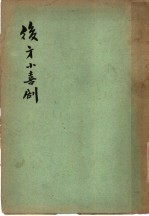 後方小喜剧